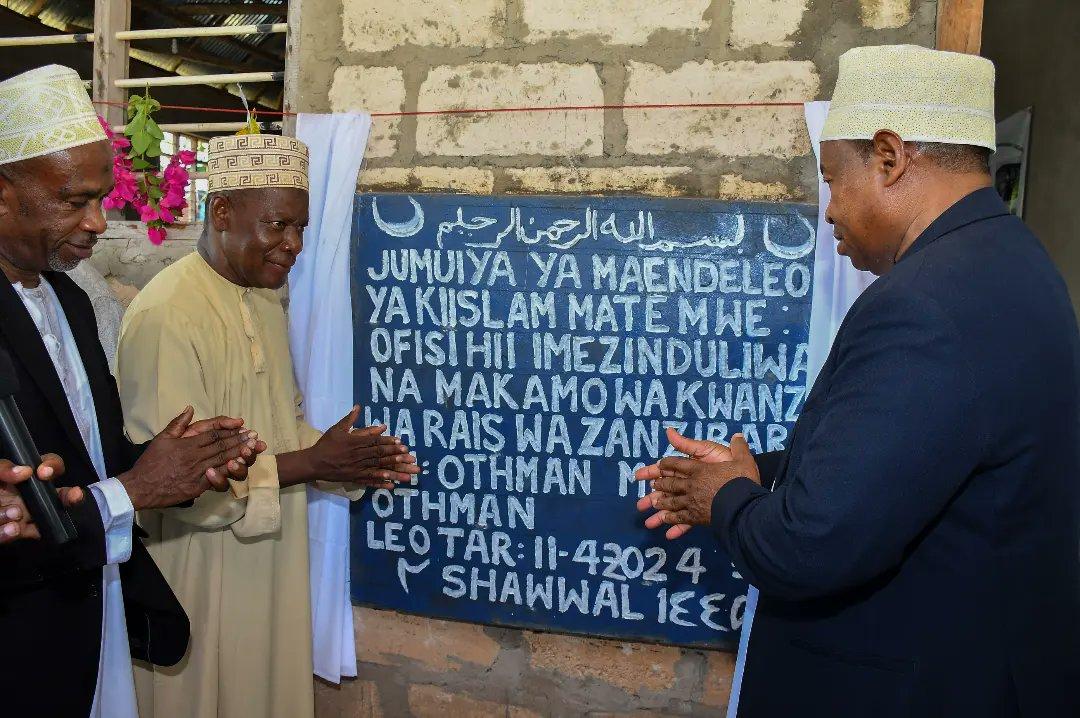 بسم الله الرحمن الرحيم
JUMUIYA YA MAENDELEO
YA KIISLAM MATEMWE:
OFISI HII IMEZINDULIWA
NA MAKAMO WA KWANZ
WA RAIS WA ZANZIBAR
: OTHMAN M
OTHMAN
LEO TAR: 11-4-2024
٢ SHAWWAL ١٤٤٥